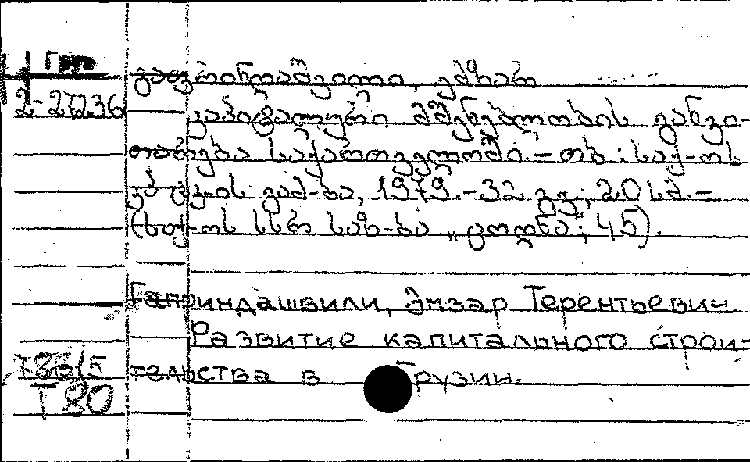 Груз
2-27236
გაფრინდაშვილი, ემზარ
კაპიტალური მშენებლობის განვი-
თარება საქართველოში. – თბ.: საქ-ოს
კპ ცკ-ის გამ-ბა, 1979. – 32 გვ.; 20 სმ –
(საქ-ოს სსრ საზ-ბა „ცოდნა“; 45).
Гаприндашвили, Эмзар Терентьевич
Развитие капитального строи-
тельства в Грузии.
Т 80